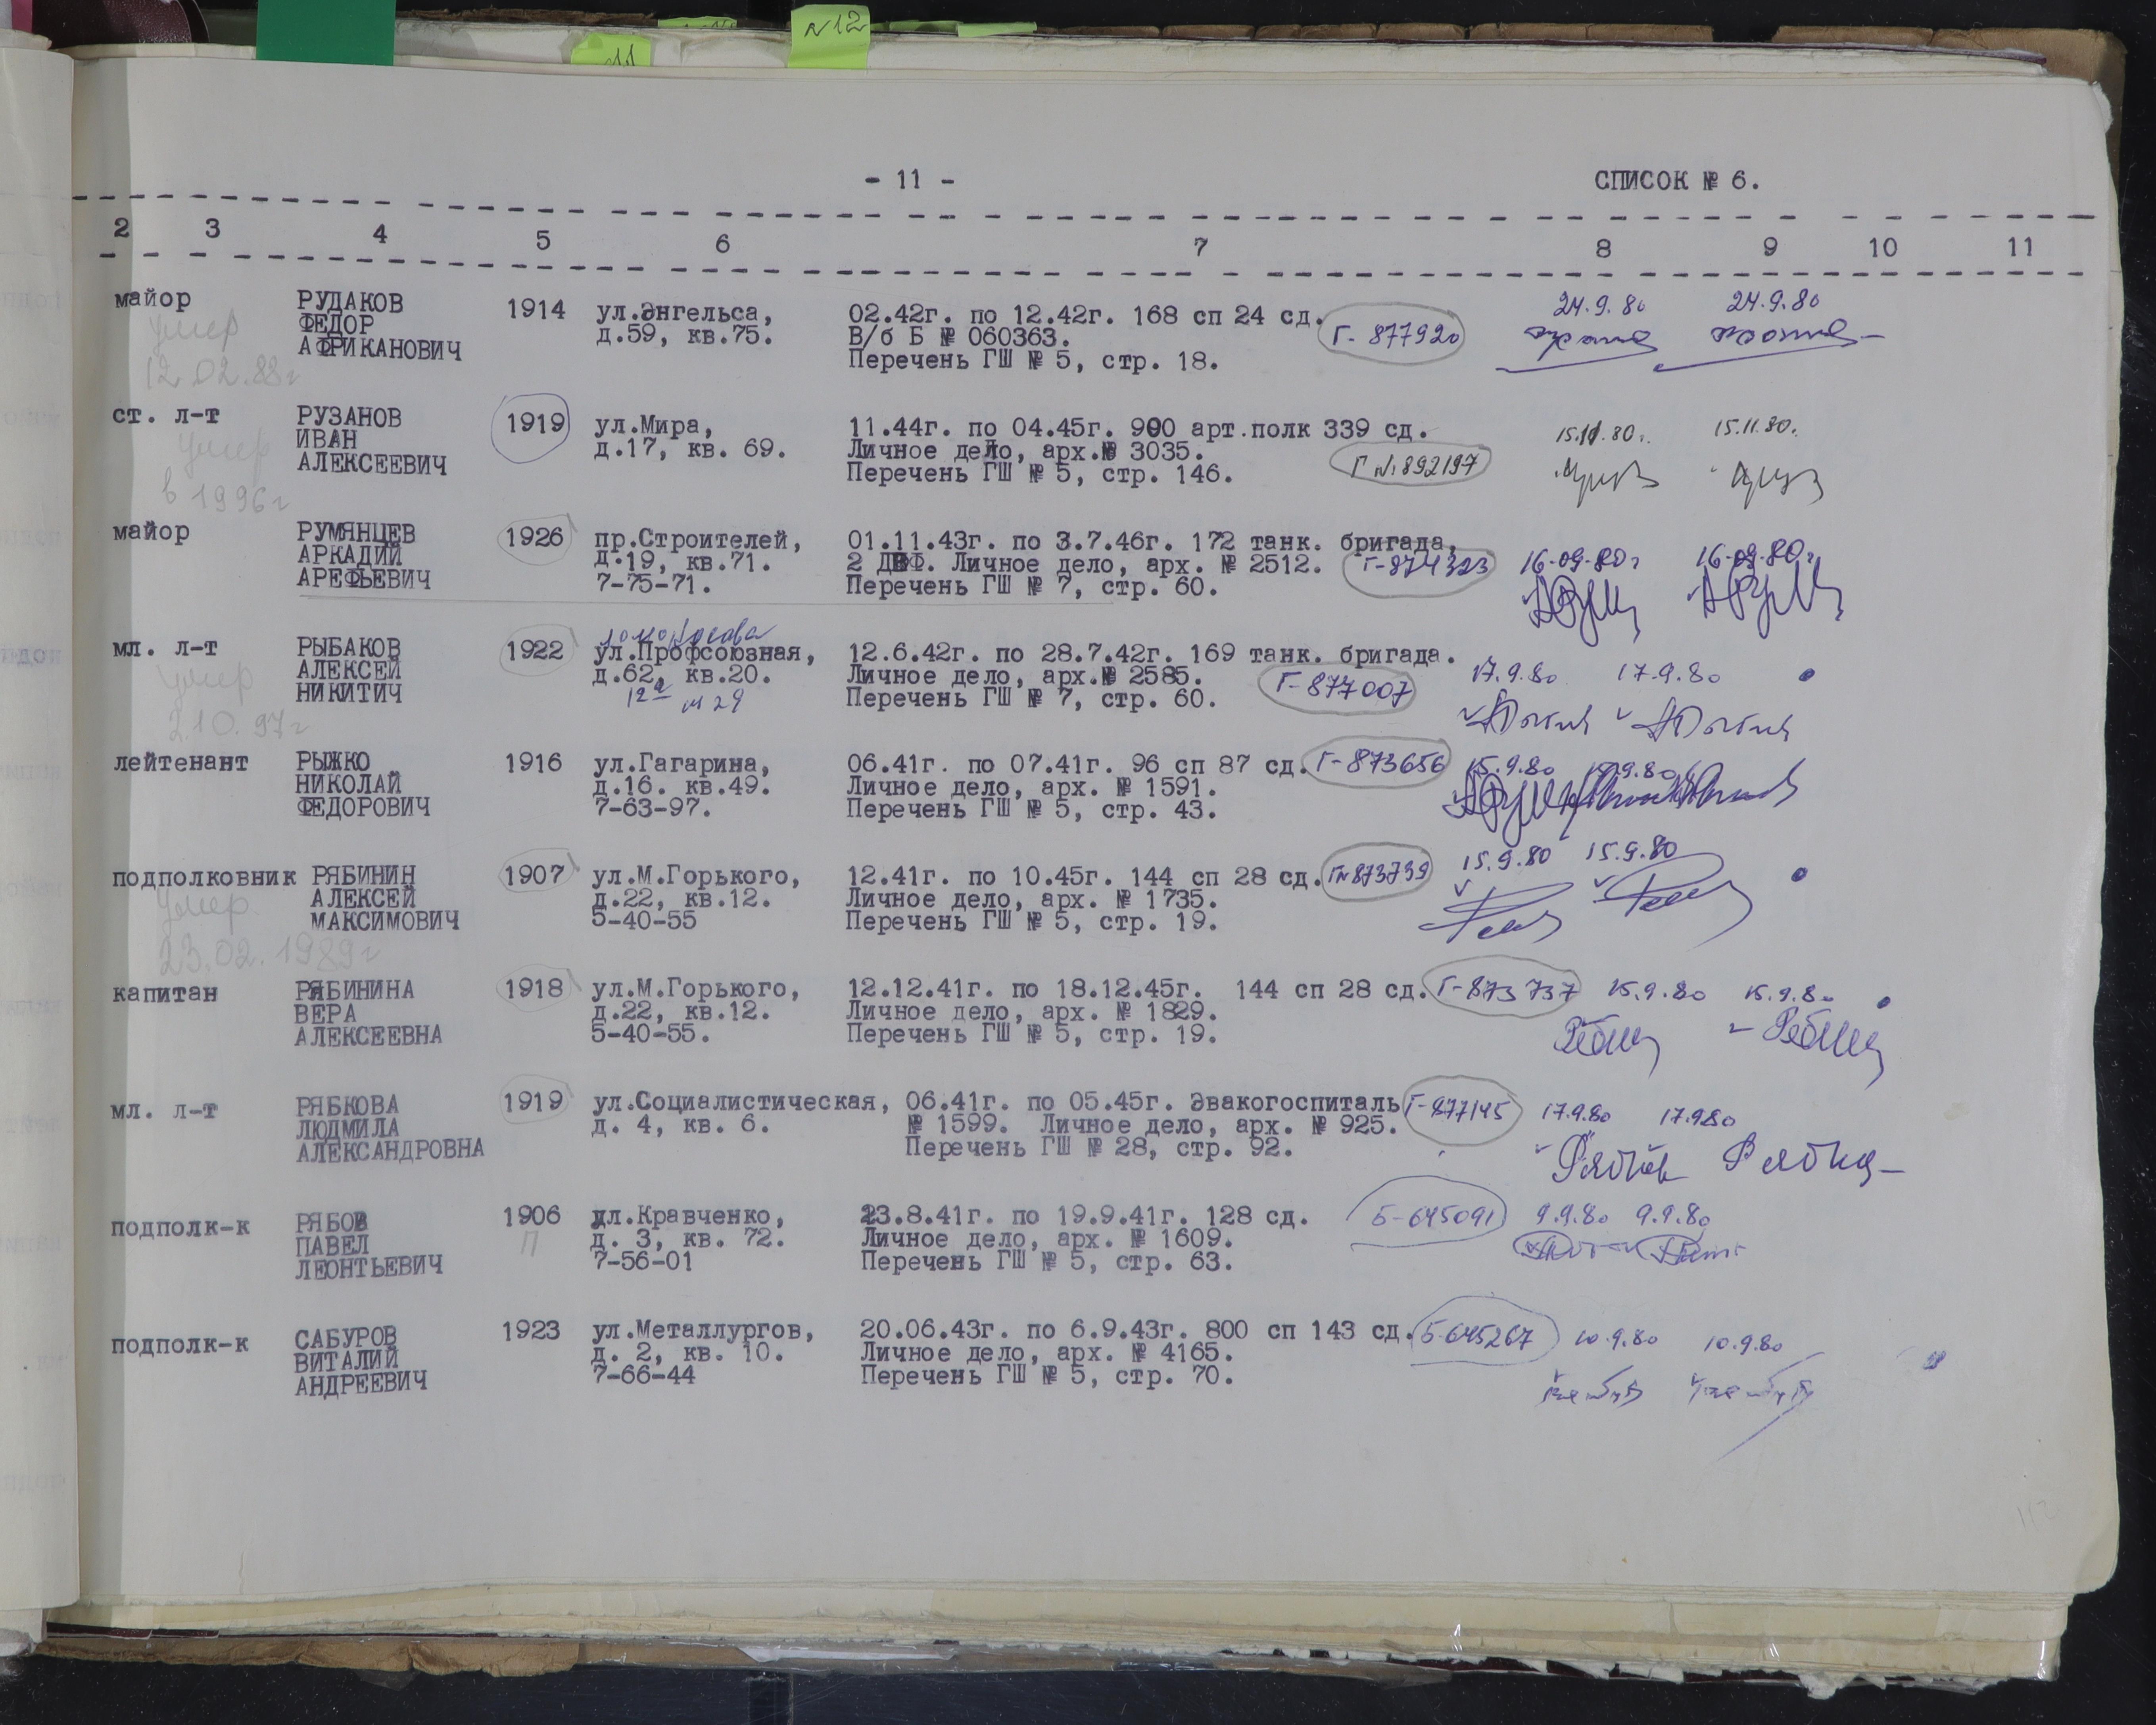 N12
- 11 -
СПИСОК № 6.
2 3 4 5 6 7 8 9 10 11
майор РУДАКОВ 1914 ул.Энгельса, 02.42г. по 12.42г. 168 сп 24 сд. Г-877920 24.9.80 24.9.80
умер ФЕДОР д.59, кв.75. В/б Б № 060363.
12.02.88г АФРИКАНОВИЧ Перечень ГШ № 5, стр. 18.
ст. л-т РУЗАНОВ 1919 ул.Мира, 11.44г. по 04.45г. 900 арт.полк 339 сд. 15.11.80г. 15.11.80.
умер ИВАН д.17, кв. 69. Личное дело, арх.№ 3035. Г №892197
в 1996г АЛЕКСЕЕВИЧ Перечень ГШ № 5, стр. 146.
майор РУМЯНЦЕВ 1926 пр.Строителей, 01.11.43г. по 3.7.46г. 172 танк. бригада,
АРКАДИЙ д.19, кв.71. 2 ДВФ. Личное дело, арх. № 2512. Г-874323 16-09-80г 16-09-80г
АРЕФЬЕВИЧ 7-75-71. Перечень ГШ № 7, стр. 60.
мл. л-т РЫБАКОВ 1922 ул.Профсоюзная, 12.6.42г. по 28.7.42г. 169 танк. бригада.
умер АЛЕКСЕЙ д.62, кв.20. Личное дело, арх.№ 2585. Г-877007 17.9.80 17.9.80
2.10.97г НИКИТИЧ 12а Перечень ГШ № 7, стр. 60.
лейтенант РЫЖКО 1916 ул.Гагарина, 06.41г. по 07.41г. 96 сп 87 сд. Г-873656 15.9.80 15.9.80
НИКОЛАЙ д.16. кв.49. Личное дело, арх. № 1591.
ФЕДОРОВИЧ 7-63-97. Перечень ГШ № 5, стр. 43.
подполковник РЯБИНИН 1907 ул.М.Горького, 12.41г. по 10.45г. 144 сп 28 сд. Г№873739 15.9.80 15.9.80
умер АЛЕКСЕЙ д.22, кв.12. Личное дело, арх. № 1735.
23.02.1989г МАКСИМОВИЧ 5-40-55 Перечень ГШ № 5, стр. 19.
капитан РЯБИНИНА 1918 ул.М.Горького, 12.12.41г. по 18.12.45г. 144 сп 28 сд. Г-873737 15.9.80 15.9.80
ВЕРА д.22, кв.12. Личное дело, арх. № 1829.
АЛЕКСЕЕВНА 5-40-55. Перечень ГШ № 5, стр. 19.
мл. л-т РЯБКОВА 1919 ул.Социалистическая, 06.41г. по 05.45г. Эвакогоспиталь Г-877145 17.9.80 17.9.80
ЛЮДМИЛА д. 4, кв. 6. № 1599. Личное дело, арх. № 925.
АЛЕКСАНДРОВНА Перечень ГШ № 28, стр. 92.
подполк-к РЯБОВ 1906 ул.Кравченко, 23.8.41г. по 19.9.41г. 128 сд. Б-645091 9.9.80 9.9.80
ПАВЕЛ П д. 3, кв. 72. Личное дело, арх. № 1609.
ЛЕОНТЬЕВИЧ 7-56-01 Перечень ГШ № 5, стр. 63.
подполк-к САБУРОВ 1923 ул.Металлургов, 20.06.43г. по 6.9.43г. 800 сп 143 сд. Б-645267 10.9.80 10.9.80
ВИТАЛИЙ д. 2, кв. 10. Личное дело, арх. № 4165.
АНДРЕЕВИЧ 7-66-44 Перечень ГШ № 5, стр. 70.